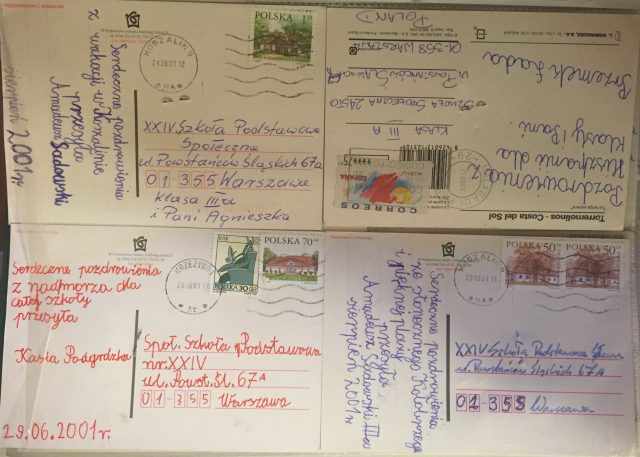 Serdeczne pozdrowienia
z wakacji w Koszalinie
przesyła
Amadeusz Sadowski
sierpień 2001 r.
POLSKA
KOSZALIN 9
240801.12
XXIV Szkoła Podstawowa
Społeczna
ul. Powstańców Śląskich 67a
01-355 Warszawa
Klasa III a
i Pani Agnieszka
Pozdrowienia z
Hiszpanii dla
Klasy i Pani
Przemek Łada
SZKOŁA SPOŁECZNA 24STO
KLASA III A
UL POWSTAŃCÓW ŚLĄSKICH
01-358 WARSZAWA
POLAND
ESPAÑA
CORREOS
75
Torremolinos - Costa del Sol
Serdeczne pozdrowienia
z nadmorza dla
całej szkoły
przesyła
Kasia Podgrodzka
29.06.2001 r.
RAK
POLSKA 30 GR
POLSKA 70 GR
Społ. Szkoła Podstawowa
nr XXIV
ul. Powst. Śl. 67A
01-355 Warszawa
Serdeczne pozdrowienia
ze słonecznego Kołobrzegu
i pięknej plaży
przesyła
Amadeusz Sadowski III a
sierpień 2001 r.
POLSKA 50 GR
POLSKA 50 GR
KOSZALIN 9
XXIV Szkoła Podstawowa
ul. Powstańców Śląskich 67A
01-355 Warszawa